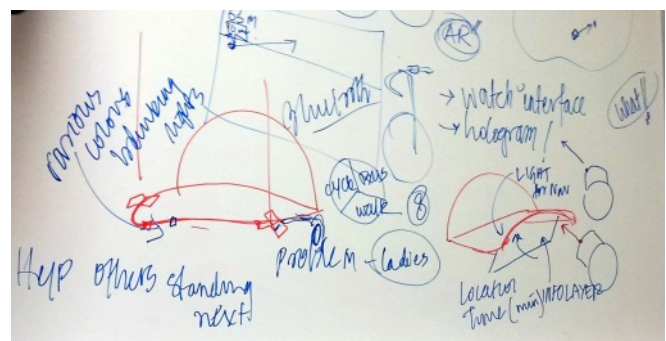 AR
various
colors
blinking
lights
Bluetooth
→ Watch interface
→ hologram!
What!
cycle
BUS
walk
8
LIGHT
for NAV
Help others standing
next
Problem - Ladies
Location
Time (min)
INFO LAYER